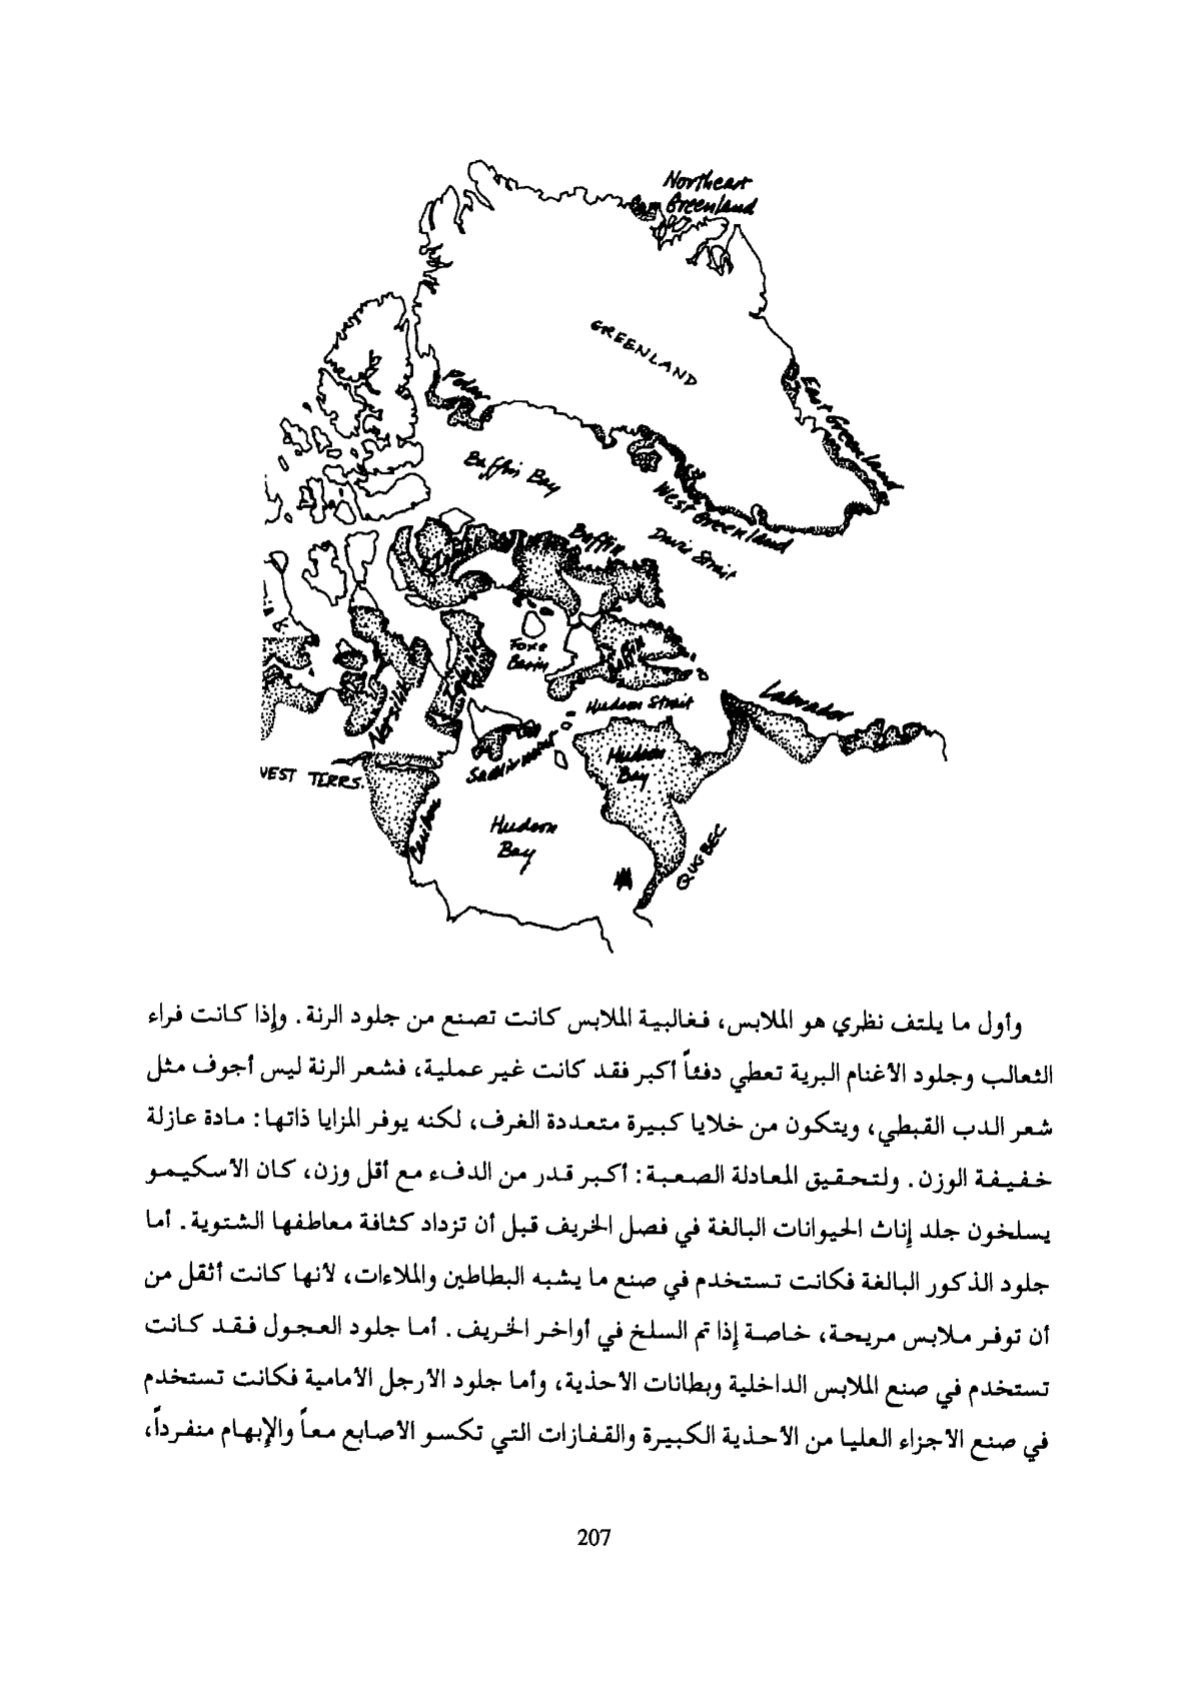 Northeast
Greenland
GREENLAND
Polar
East Greenland
Baffin Bay
West Greenland
Davis Strait
Baffin
Foxe
Basin
Baffin
Labrador
Hudson Strait
Netsilik
Hudson
Bay
WEST TERRS.
Caribou
Hudson
Bay
QUEBEC
وأول ما يلتف نظري هو الملابس، فغالبية الملابس كانت تصنع من جلود الرنة. وإذا كانت فراء
الثعالب وجلود الأغنام البرية تعطي دفئاً أكبر فقد كانت غير عملية، فشعر الرنة ليس أجوف مثل
شعر الدب القبطي، ويتكون من خلايا كبيرة متعددة الغرف، لكنه يوفر المزايا ذاتها: مادة عازلة
خفيفة الوزن. ولتحقيق المعادلة الصعبة: أكبر قدر من الدفء مع أقل وزن، كان الأسكيمو
يسلخون جلد إناث الحيوانات البالغة في فصل الخريف قبل أن تزداد كثافة معاطفها الشتوية. أما
جلود الذكور البالغة فكانت تستخدم في صنع ما يشبه البطاطين والملاءات، لأنها كانت أثقل من
أن توفر ملابس مريحة، خاصة إذا تم السلخ في أواخر الخريف. أما جلود العجول فقد كانت
تستخدم في صنع الملابس الداخلية وبطانات الأحذية، وأما جلود الأرجل الأمامية فكانت تستخدم
في صنع الأجزاء العليا من الأحذية الكبيرة والقفازات التي تكسو الأصابع معاً والإبهام منفرداً،
207